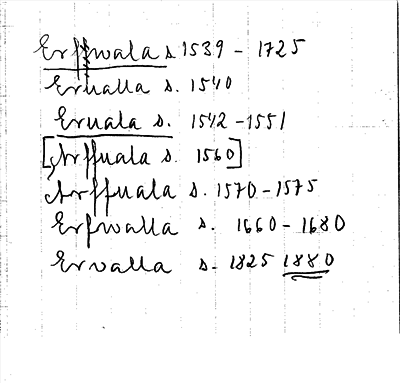 Erffwala s. 1539 - 1725
Erualla s. 1540
Eruala s. 1542 - 1551
[Arffuala s. 1560]
Arffuala s. 1570 - 1575
Erfwalla s. 1660 - 1680
Ervalla s. 1825 1880